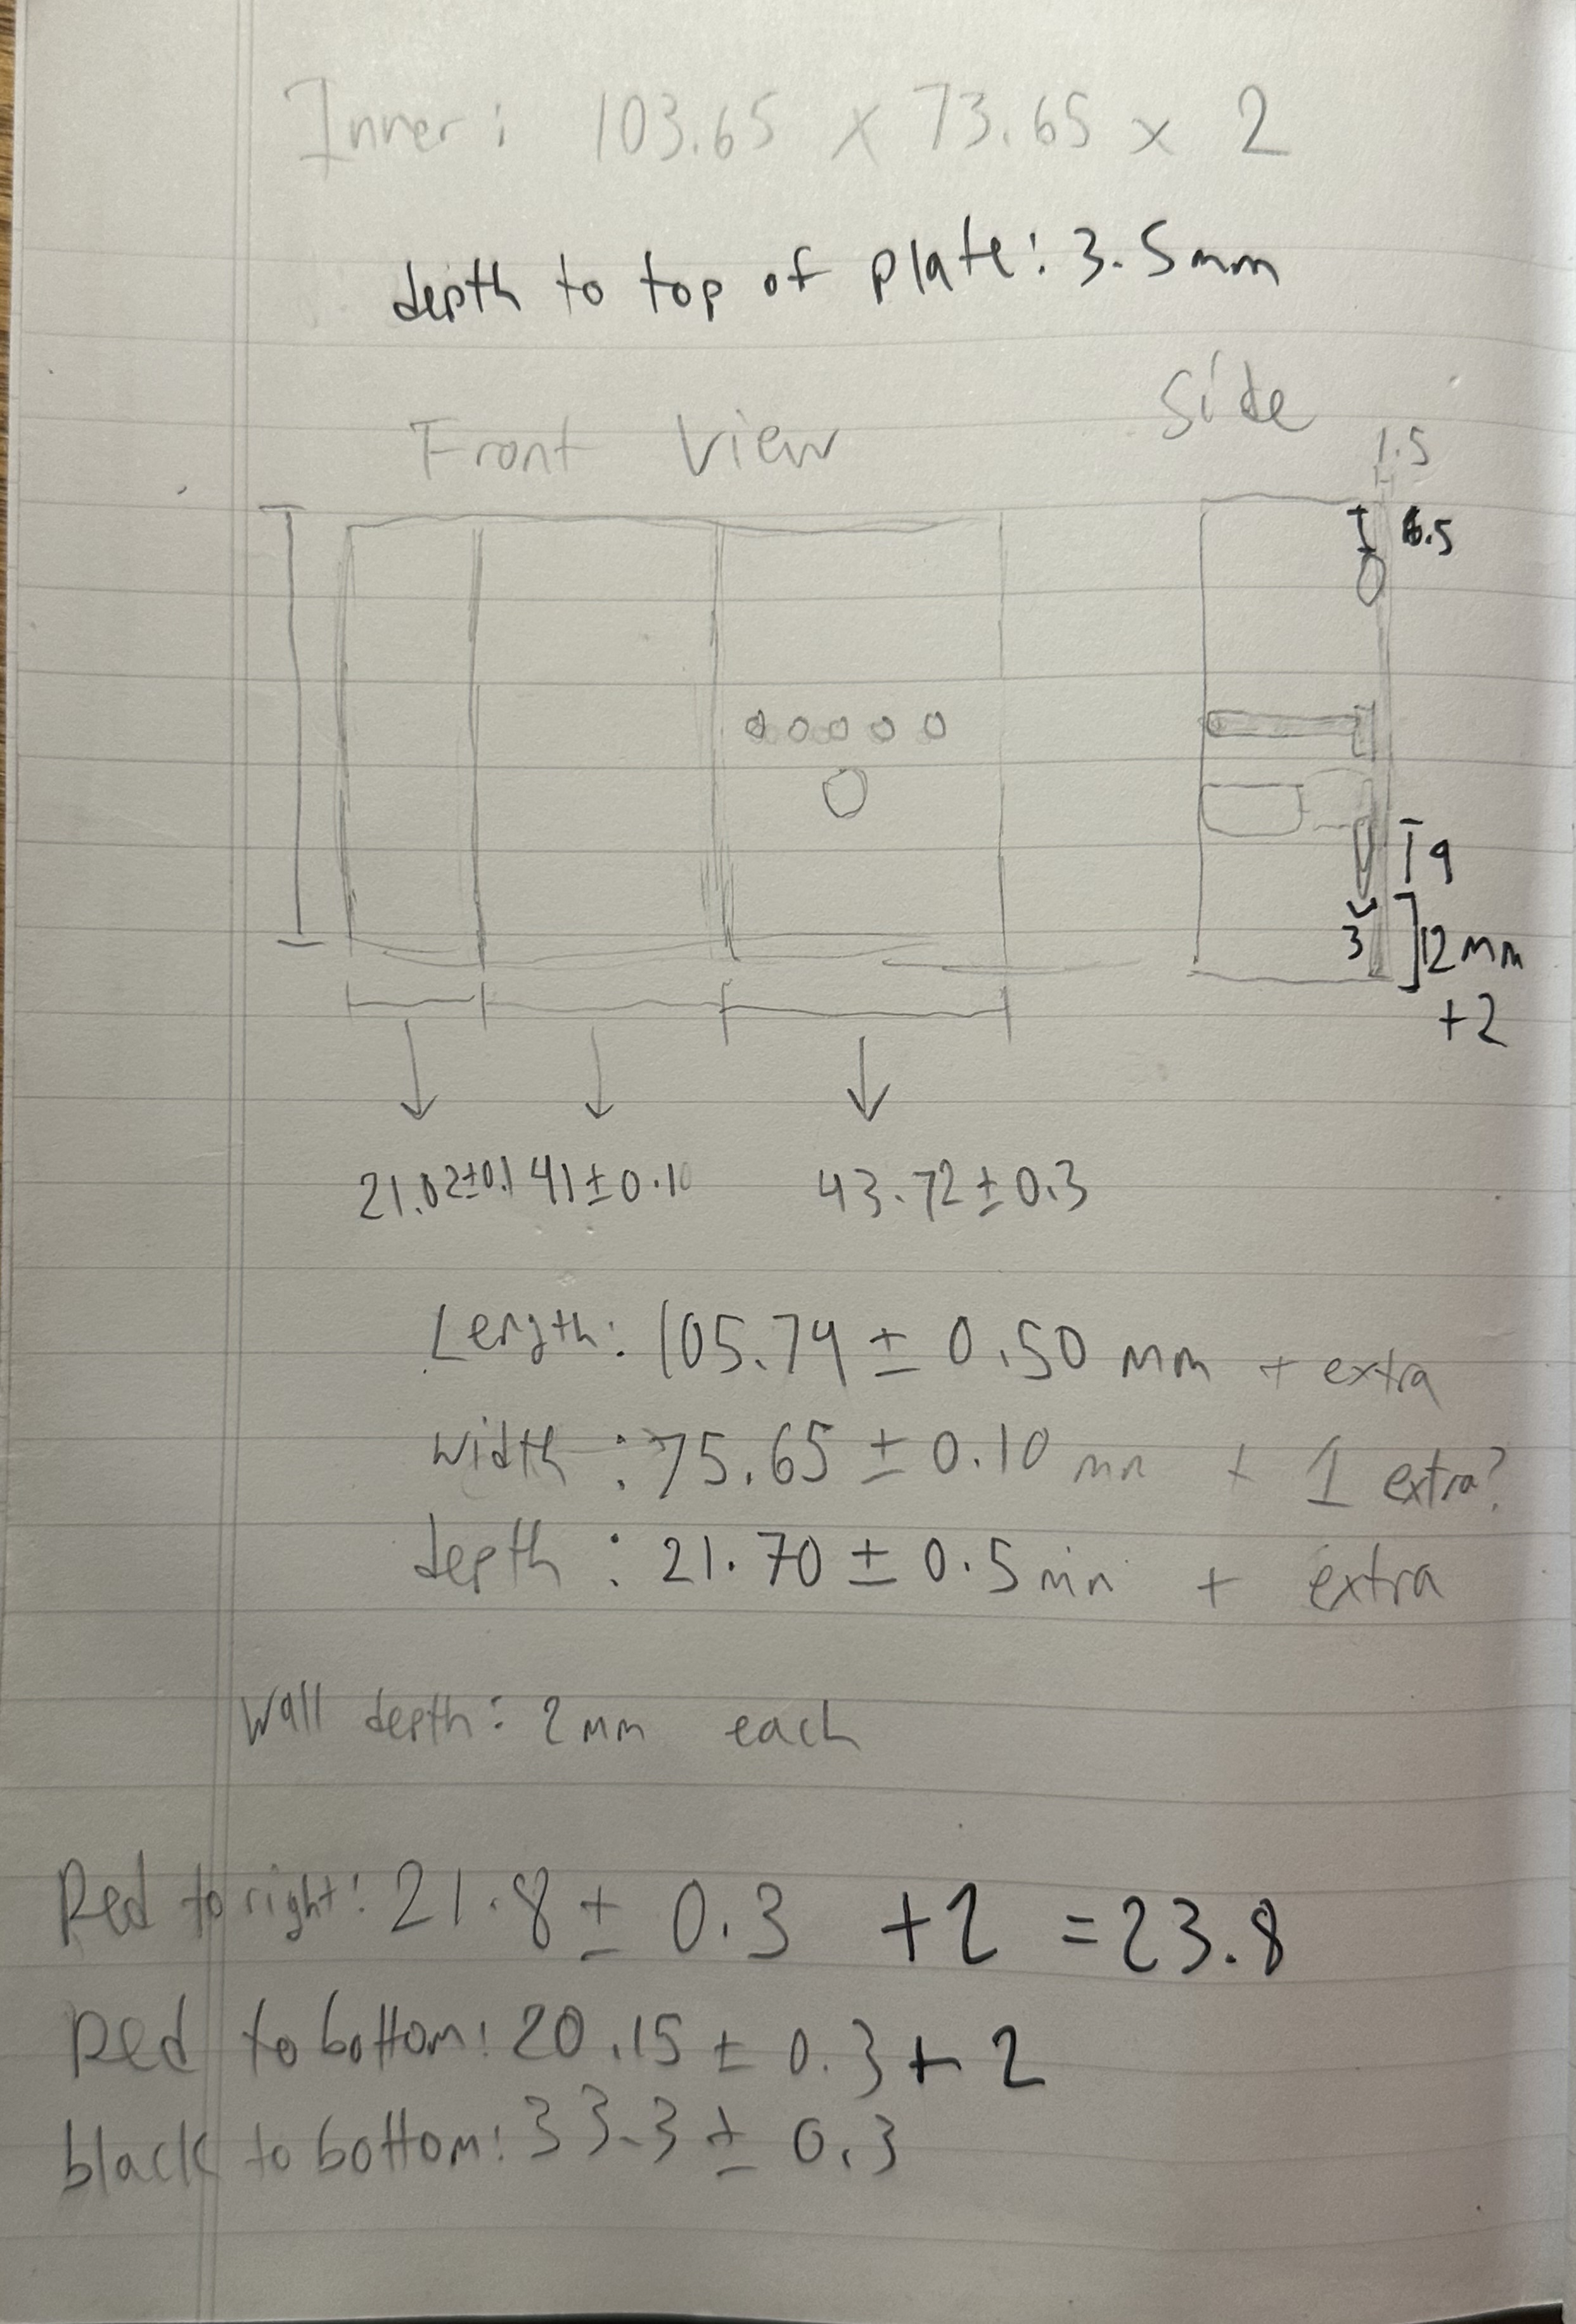 Inner: 103.65 x 73.65 x 2
depth to top of plate: 3.5mm
Side
Front View
1.5
6.5
9
3
12mm
+2
21.02±0.1 41±0.10 43.72±0.3
Length: 105.74 ± 0.50 mm + extra
width: 75.65 ± 0.10 mm + 1 extra?
depth: 21.70 ± 0.5 mm + extra
Wall depth: 2mm each
Red to right: 21.8 ± 0.3 +2 = 23.8
Red to bottom: 20.15 ± 0.3 + 2
black to bottom: 33.3 ± 0.3